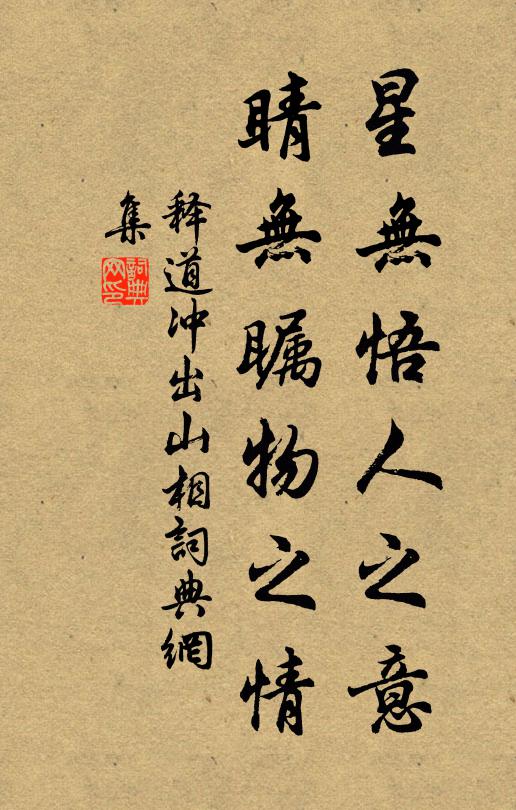 星無悟人之意
睛無瞩物之情
释道冲出山相詞典網
集
詞典
网印